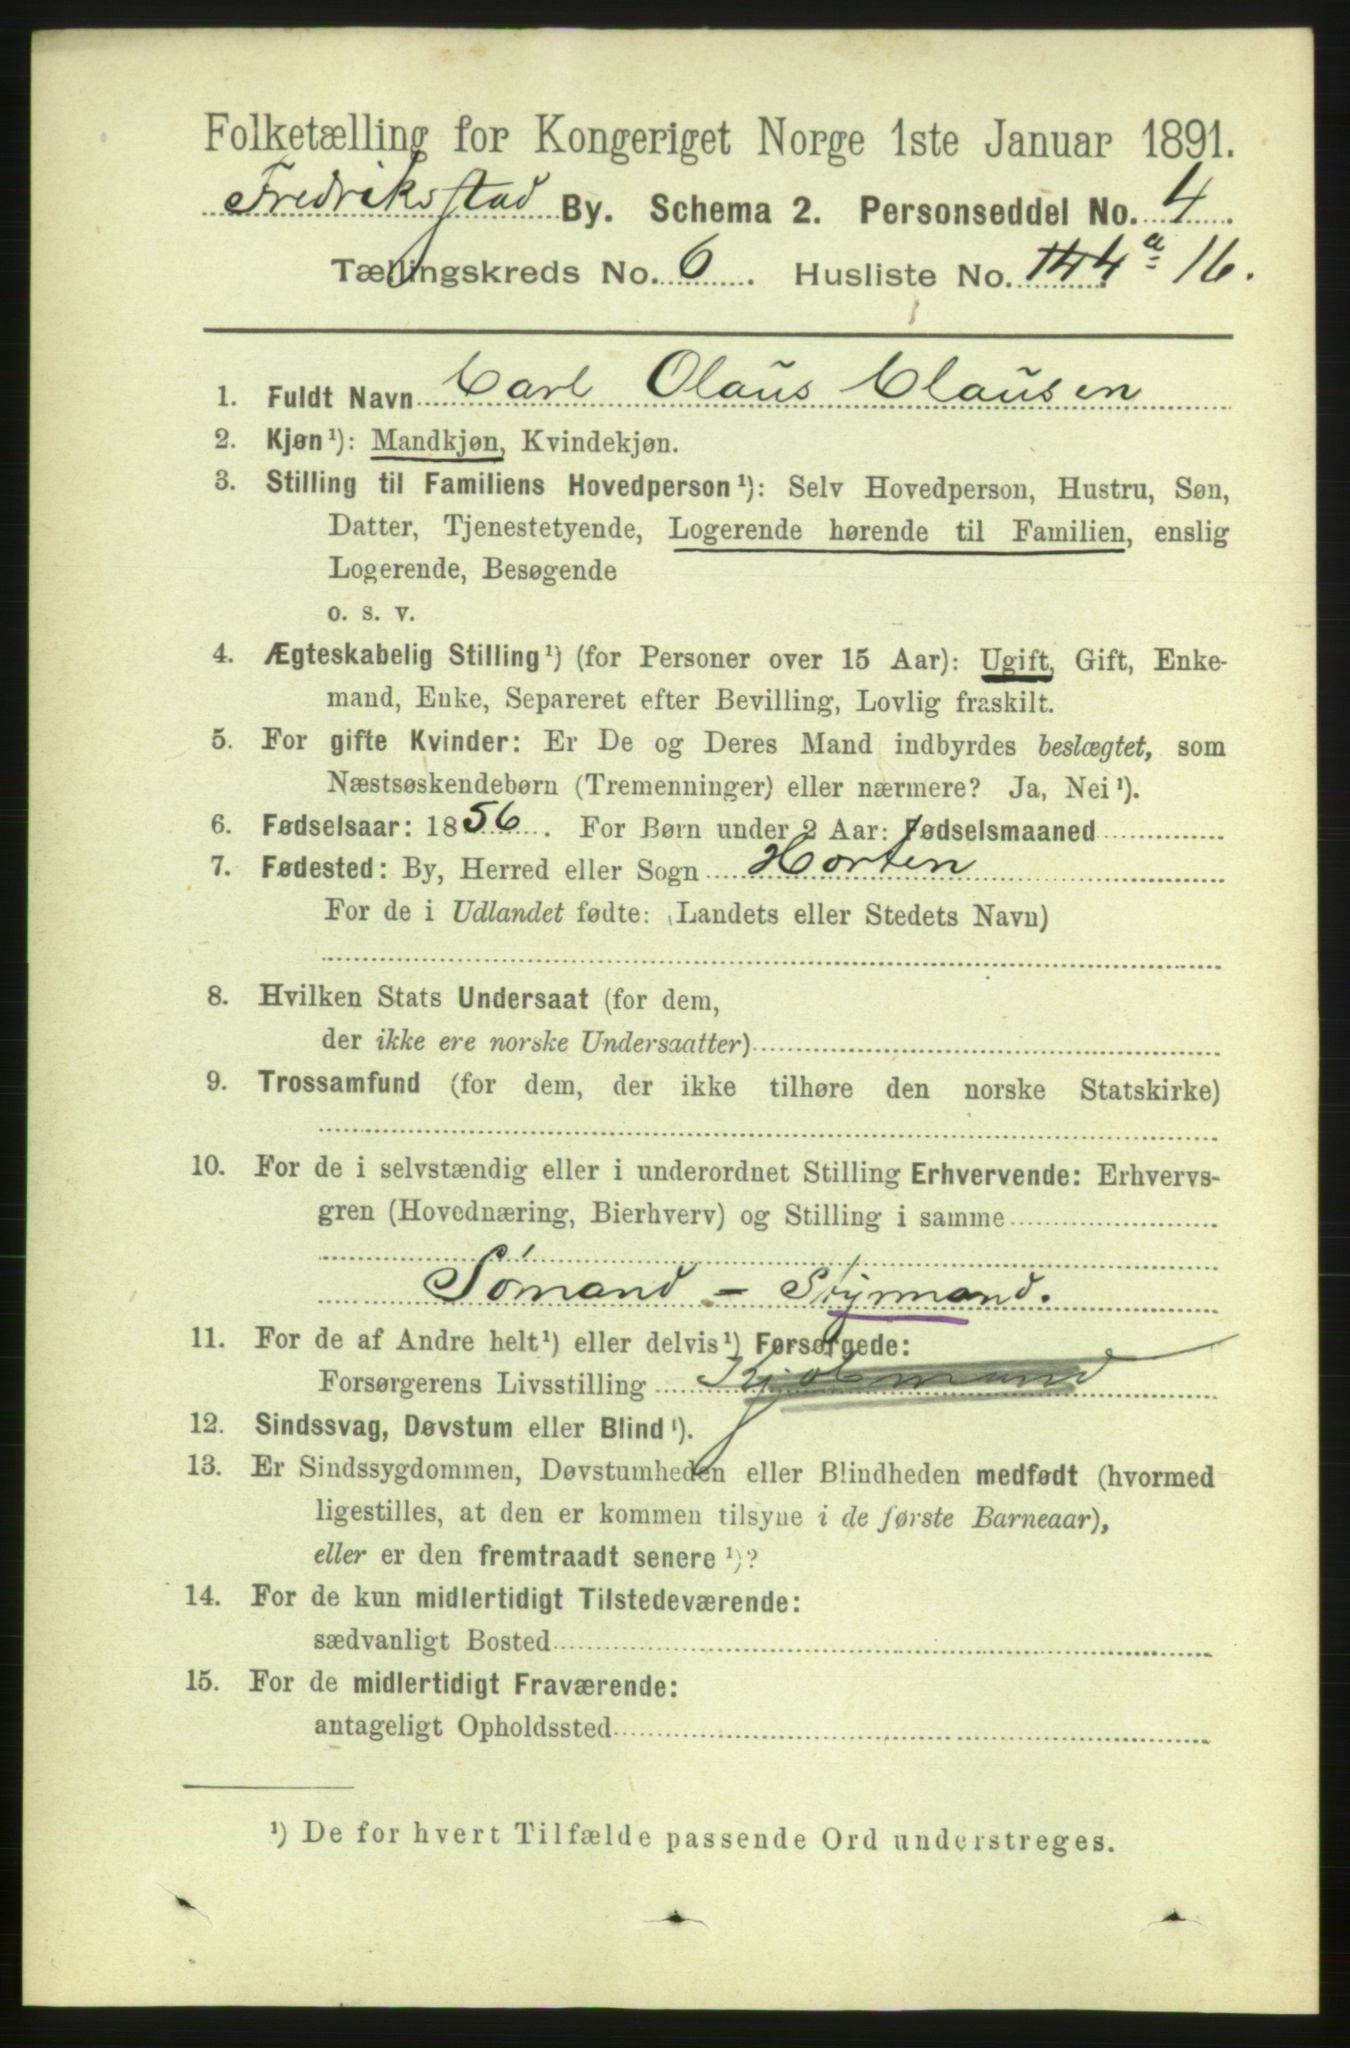 Folketælling for Kongeriget Norge 1ste Januar 1891.
Fredriksstad By. Schema 2. Personseddel No. 4
Tællingskreds No. 6. Husliste No. 144 a 16.
1. Fuldt Navn Carl Olaus Clausen
2. Kjøn¹): Mandkjøn, Kvindekjøn.
3. Stilling til Familiens Hovedperson¹): Selv Hovedperson, Hustru, Søn,
Datter, Tjenestetyende, Logerende hørende til Familien, enslig
Logerende, Besøgende
o. s. v.
4. Ægteskabelig Stilling¹) (for Personer over 15 Aar): Ugift, Gift, Enke-
mand, Enke, Separeret efter Bevilling, Lovlig fraskilt.
5. For gifte Kvinder: Er De og Deres Mand indbyrdes beslægtet, som
Næstsøskendebørn (Tremenninger) eller nærmere? Ja, Nei¹).
6. Fødselsaar: 1856. For Børn under 2 Aar: Fødselsmaaned
7. Fødested: By, Herred eller Sogn Horten
For de i Udlandet fødte: (Landets eller Stedets Navn)
8. Hvilken Stats Undersaat (for dem,
der ikke ere norske Undersaatter)
9. Trossamfund (for dem, der ikke tilhøre den norske Statskirke)
10. For de i selvstændig eller i underordnet Stilling Erhvervende: Erhvervs-
gren (Hovednæring, Bierhverv) og Stilling i samme
Sömand - Styrmand.
11. For de af Andre helt¹) eller delvis¹) Forsørgede:
Forsørgerens Livsstilling
12. Sindssvag, Døvstum eller Blind¹).
13. Er Sindssygdommen, Døvstumheden eller Blindheden medfødt (hvormed
ligestilles, at den er kommen tilsyne i de første Barneaar),
eller er den fremtraadt senere¹)?
14. For de kun midlertidigt Tilstedeværende:
sædvanligt Bosted
15. For de midlertidigt Fraværende:
antageligt Opholdssted
¹) De for hvert Tilfælde passende Ord understreges.